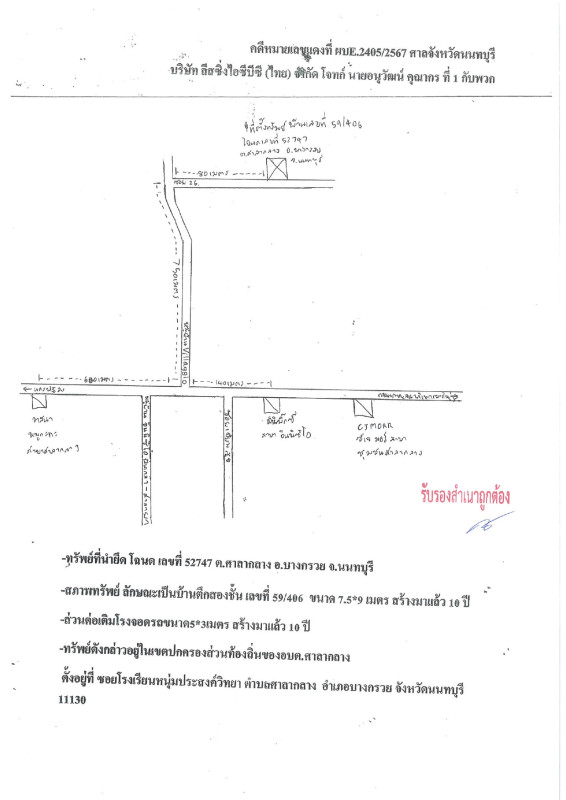 คดีหมายเลขแดงที่ ผบE.2405/2567 ศาลจังหวัดนนทบุรี
บริษัท ลีสซิ่งไอซีบีซี (ไทย) จำกัด โจทก์ นายอนุวัฒน์ คุณากร ที่ 1 กับพวก
ที่ตั้งทรัพย์ บ้านเลขที่ 59/406
โฉนดเลขที่ 52747
ต.ศาลากลาง อ.บางกรวย
จ.นนทบุรี
80 เมตร
ซอย 26
750 เมตร
Villaggio
680 เมตร
140 เมตร
CJ MORE
รับรองสำเนาถูกต้อง
-ทรัพย์ที่นำยึด โฉนด เลขที่ 52747 ต.ศาลากลาง อ.บางกรวย จ.นนทบุรี
-สภาพทรัพย์ ลักษณะเป็นบ้านตึกสองชั้น เลขที่ 59/406 ขนาด 7.5*9 เมตร สร้างมาแล้ว 10 ปี
-ส่วนต่อเติมโรงจอดรถขนาด5*3เมตร สร้างมาแล้ว 10 ปี
-ทรัพย์ดังกล่าวอยู่ในเขตปกครองส่วนท้องถิ่นของอบต.ศาลากลาง
ตั้งอยู่ที่ ซอยโรงเรียนหนุ่มประสงค์วิทยา ตำบลศาลากลาง อำเภอบางกรวย จังหวัดนนทบุรี
11130